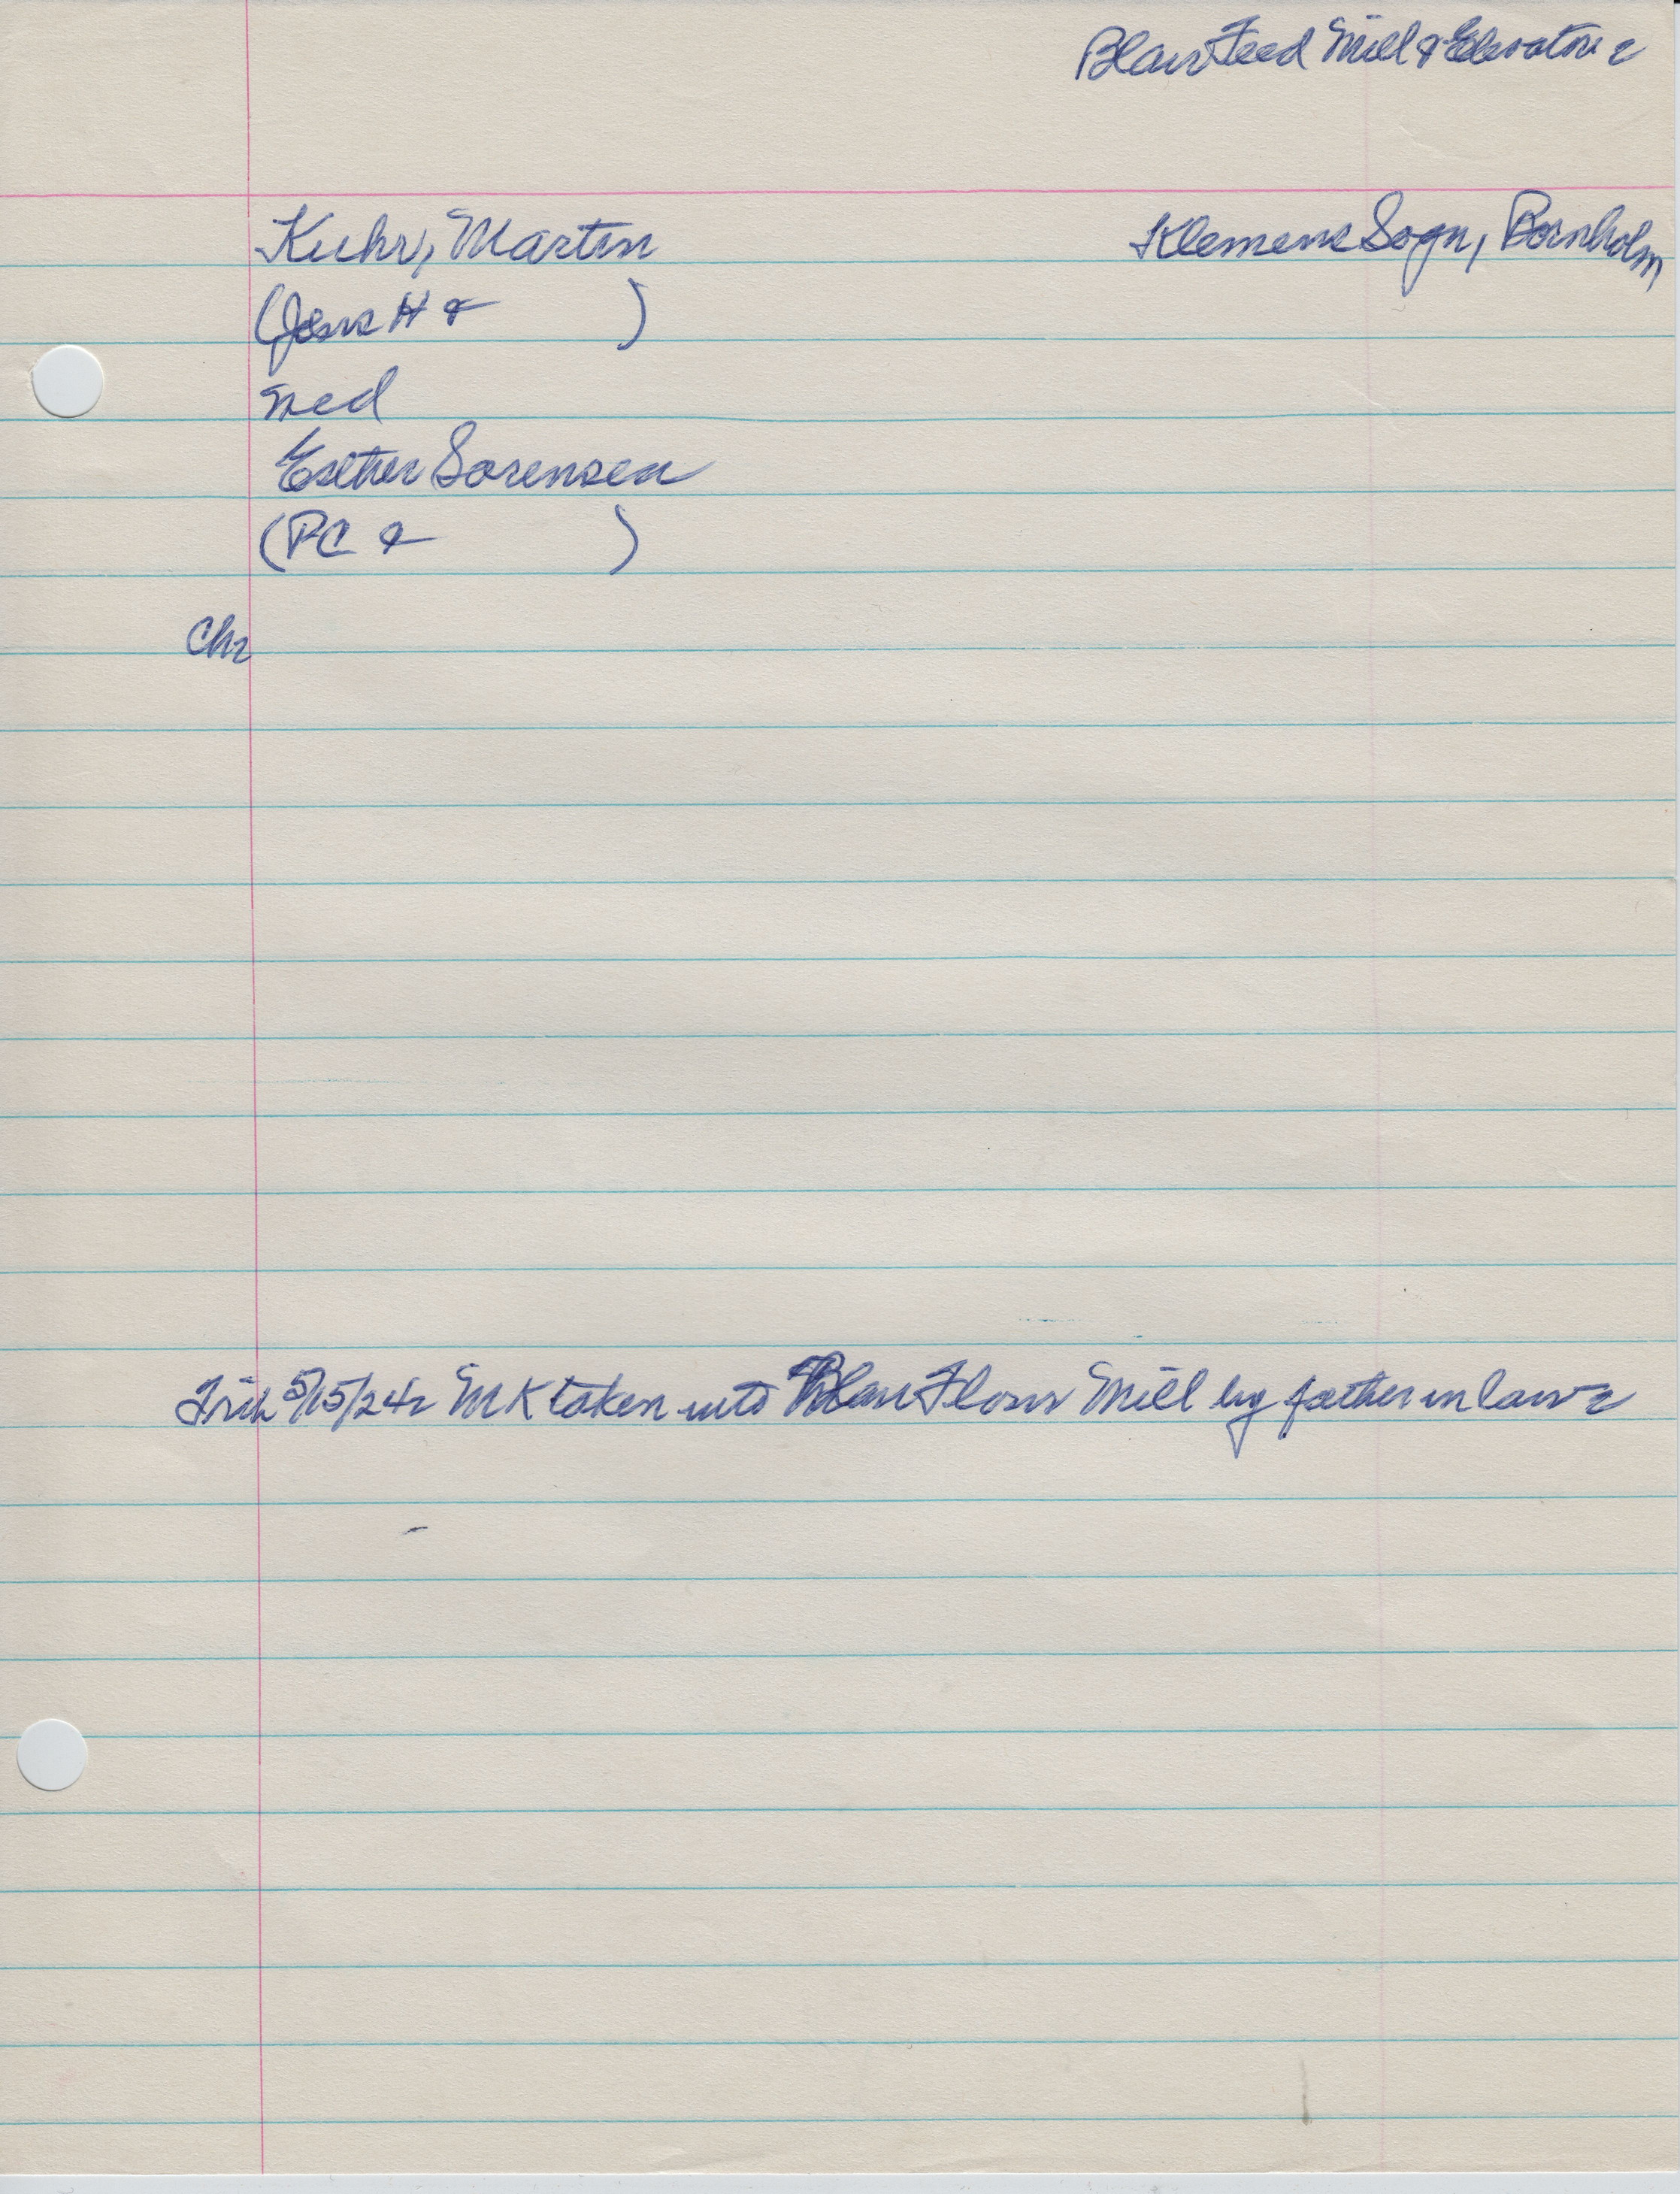 Blair Feed Mill & Elevator 2
Kuhr, Martin
Klemens Sogn, Bornholm
(Jens H & )
med
Esther Sorensen
(PC & )
Chr
5/15/24 2 MK taken into Blair Flour Mill by father in law 2